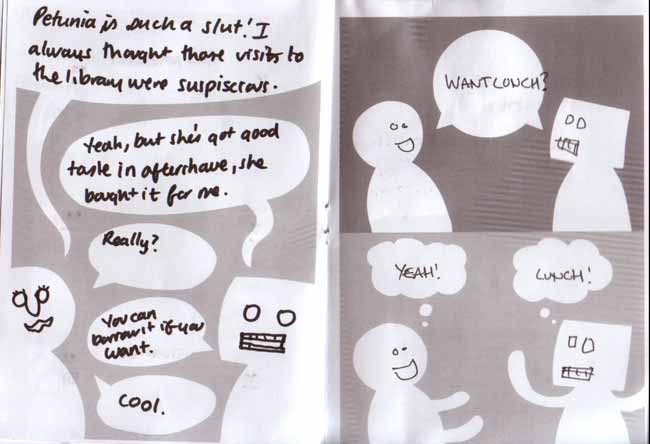 Petunia is such a slut! I
always thought those visits to
the library were suspiscious.
Yeah, but she's got good
taste in aftershave, she
bought it for me.
Really?
You can
borrow it if you
want.
Cool.
WANT LUNCH?
YEAH!
LUNCH!